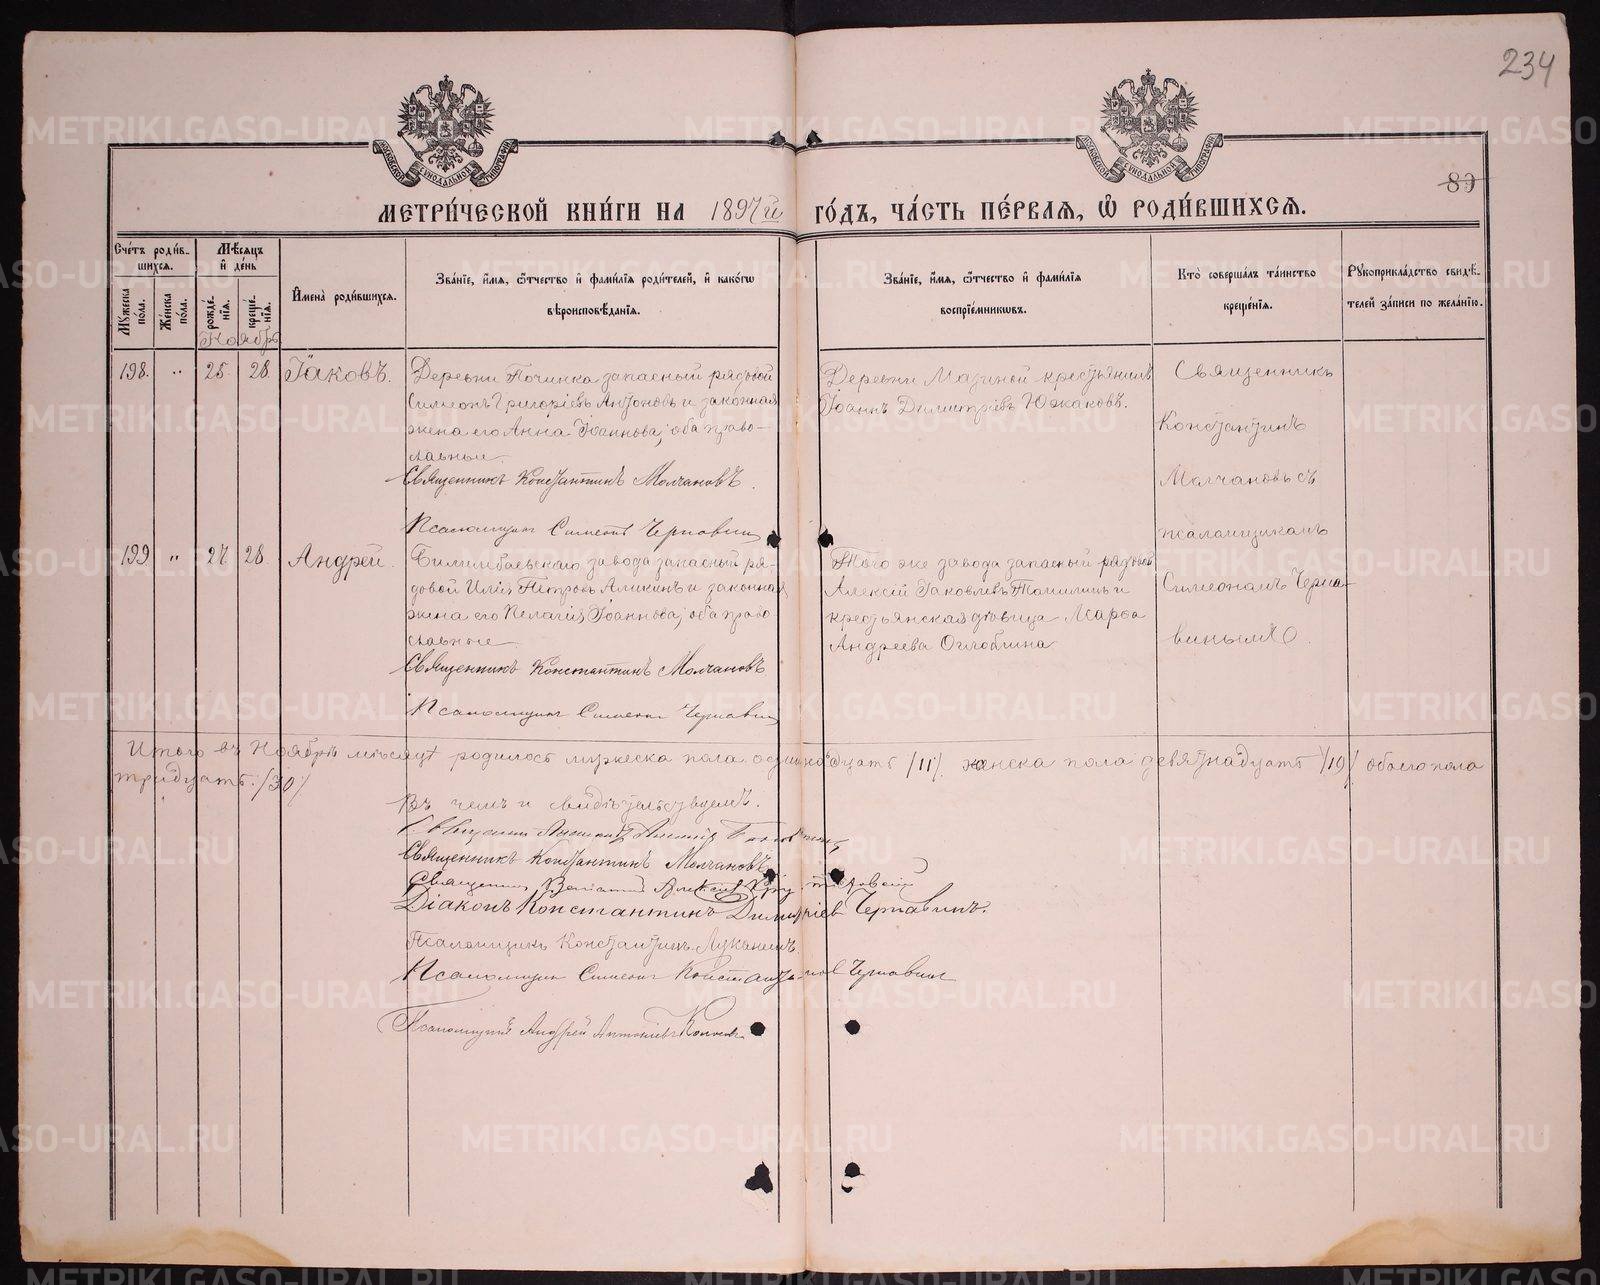 234
89
МЕТРИ́ЧЕСКОЙ КНИ́ГИ НА 1897й ГО́ДЪ, ЧА́СТЬ ПЕ́РВАЯ, Ѽ РОДИ́ВШИХСЯ.
Сче́тъ роди́вшихся.
Му́жеска по́ла.
Же́нска по́ла.
Мѣ́сяцъ и́ де́нь
рожде́нїя.
креще́нїя.
И҆мена̀ роди́вшихся.
Зва́нїе, и҆́мя, ѻ҆́тчество и҆ фами́лїя роди́телей, и҆ како́гѡ вѣроисповѣ́данїя.
Зва́нїе, и҆́мя, ѻ҆́тчество и҆ фами́лїя воспрїе́мникѡвъ.
Кто̀ соверша́лъ та́инство креще́нїя.
Рꙋкоприкла́дство свидѣ́телей за́писи по жела́нїю.
Ноябрь
198. " 25. 28. Іаковъ.
Деревни Починка запасный рядовой
Симеонъ Григоріевъ Антоновъ и законная
жена его Анна Іоаннова, оба право-
славные.
Священникъ Константинъ Молчановъ.
Псаломщик Симеонъ Чернавин
Деревни Мазиной крестьянинъ
Іоаннъ Димитріевъ Южаковъ.
Священникъ
Константинъ
Молчановъ съ
псаломщикомъ
Симеономъ Черна-
винымъ.
199 " 27. 28. Андрей.
Билимбаевскаго завода запасный ря-
довой Илія Петровъ Аликинъ и законная
жена его Пелагія Іоаннова, оба право
славные
Священникъ Константинъ Молчановъ
Псаломщик Симеонъ Чернавин
Того же завода запасный рядовой
Алексій Іаковлевъ Томилинъ и
крестьянская дѣвица Марѳа
Андреева Оглоблина
Итого въ Ноябрѣ мѣсяцѣ родилось мужеска пола одиннадцать /11/. женска пола девятнадцать /19/ обоего пола
тридцать. /30/
Въ чемъ и свидѣтельствуемъ.
Священникъ Константинъ Молчановъ
Священник
Діаконъ Константинъ Димитріев Чернавинъ.
Псаломщикъ Константинъ Луканинъ.
Псаломщик Симеонъ Константинов Чернавин
Псаломщикъ Андрей